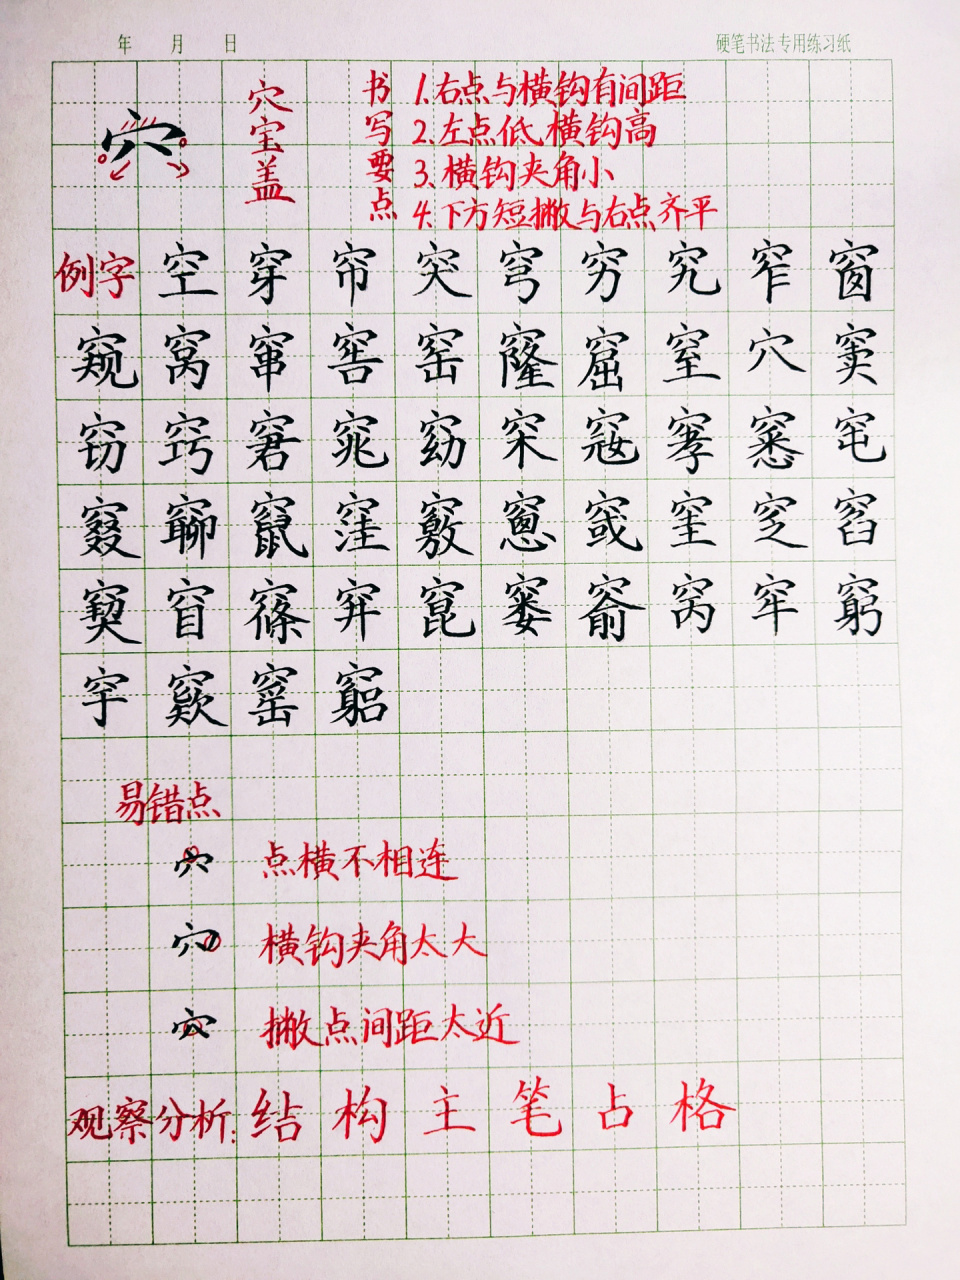 年 月 日 硬笔书法专用练习纸
穴
穴宝盖
书写要点
1.右点与横钩有间距
2.左点低、横钩高
3.横钩夹角小
4.下方短撇与右点齐平
例字 空 穿 帘 突 穹 穷 究 窄 窗
窥 窝 窜 窖 窑 窿 窟 窒 穴 窦
窃 窍 窘 窕 窈 窸 窀
鼠 窪 窾 窗 窐 窆 窞
窫 窅 窱 穽 窭 窬 窝 窂 窮
穻 窾 窰
易错点
穴 点横不相连
穴 横钩夹角太大
穴 撇点间距太近
观察分析: 结 构 主 笔 占 格